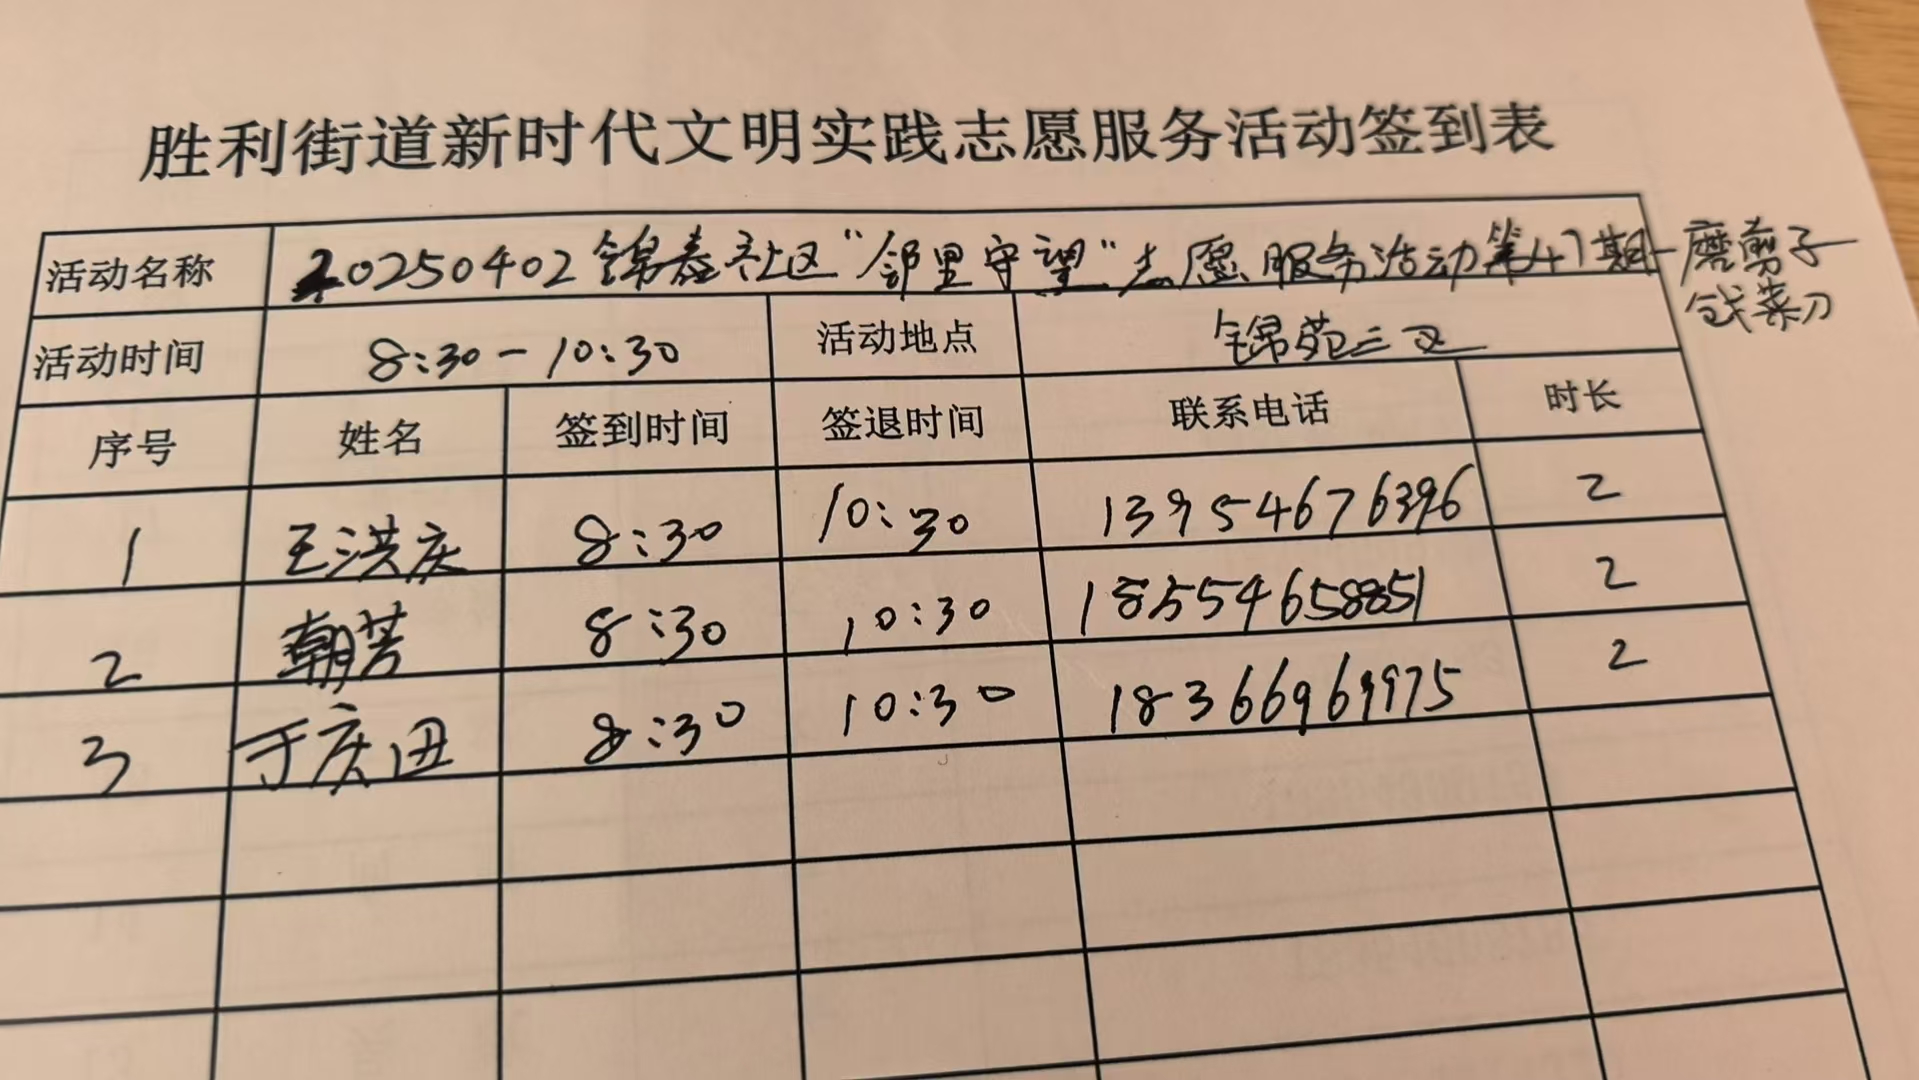 胜利街道新时代文明实践志愿服务活动签到表
活动名称 20250402锦泰社区“邻里守望”志愿服务活动第47期-磨剪子
戗菜刀
活动时间 8:30-10:30 活动地点 锦苑三区
序号 姓名 签到时间 签退时间 联系电话 时长
1 王洪庆 8:30 10:30 13954676396 2
2 8:30 10:30 18554658851 2
3 于庆田 8:30 10:30 18366969975 2